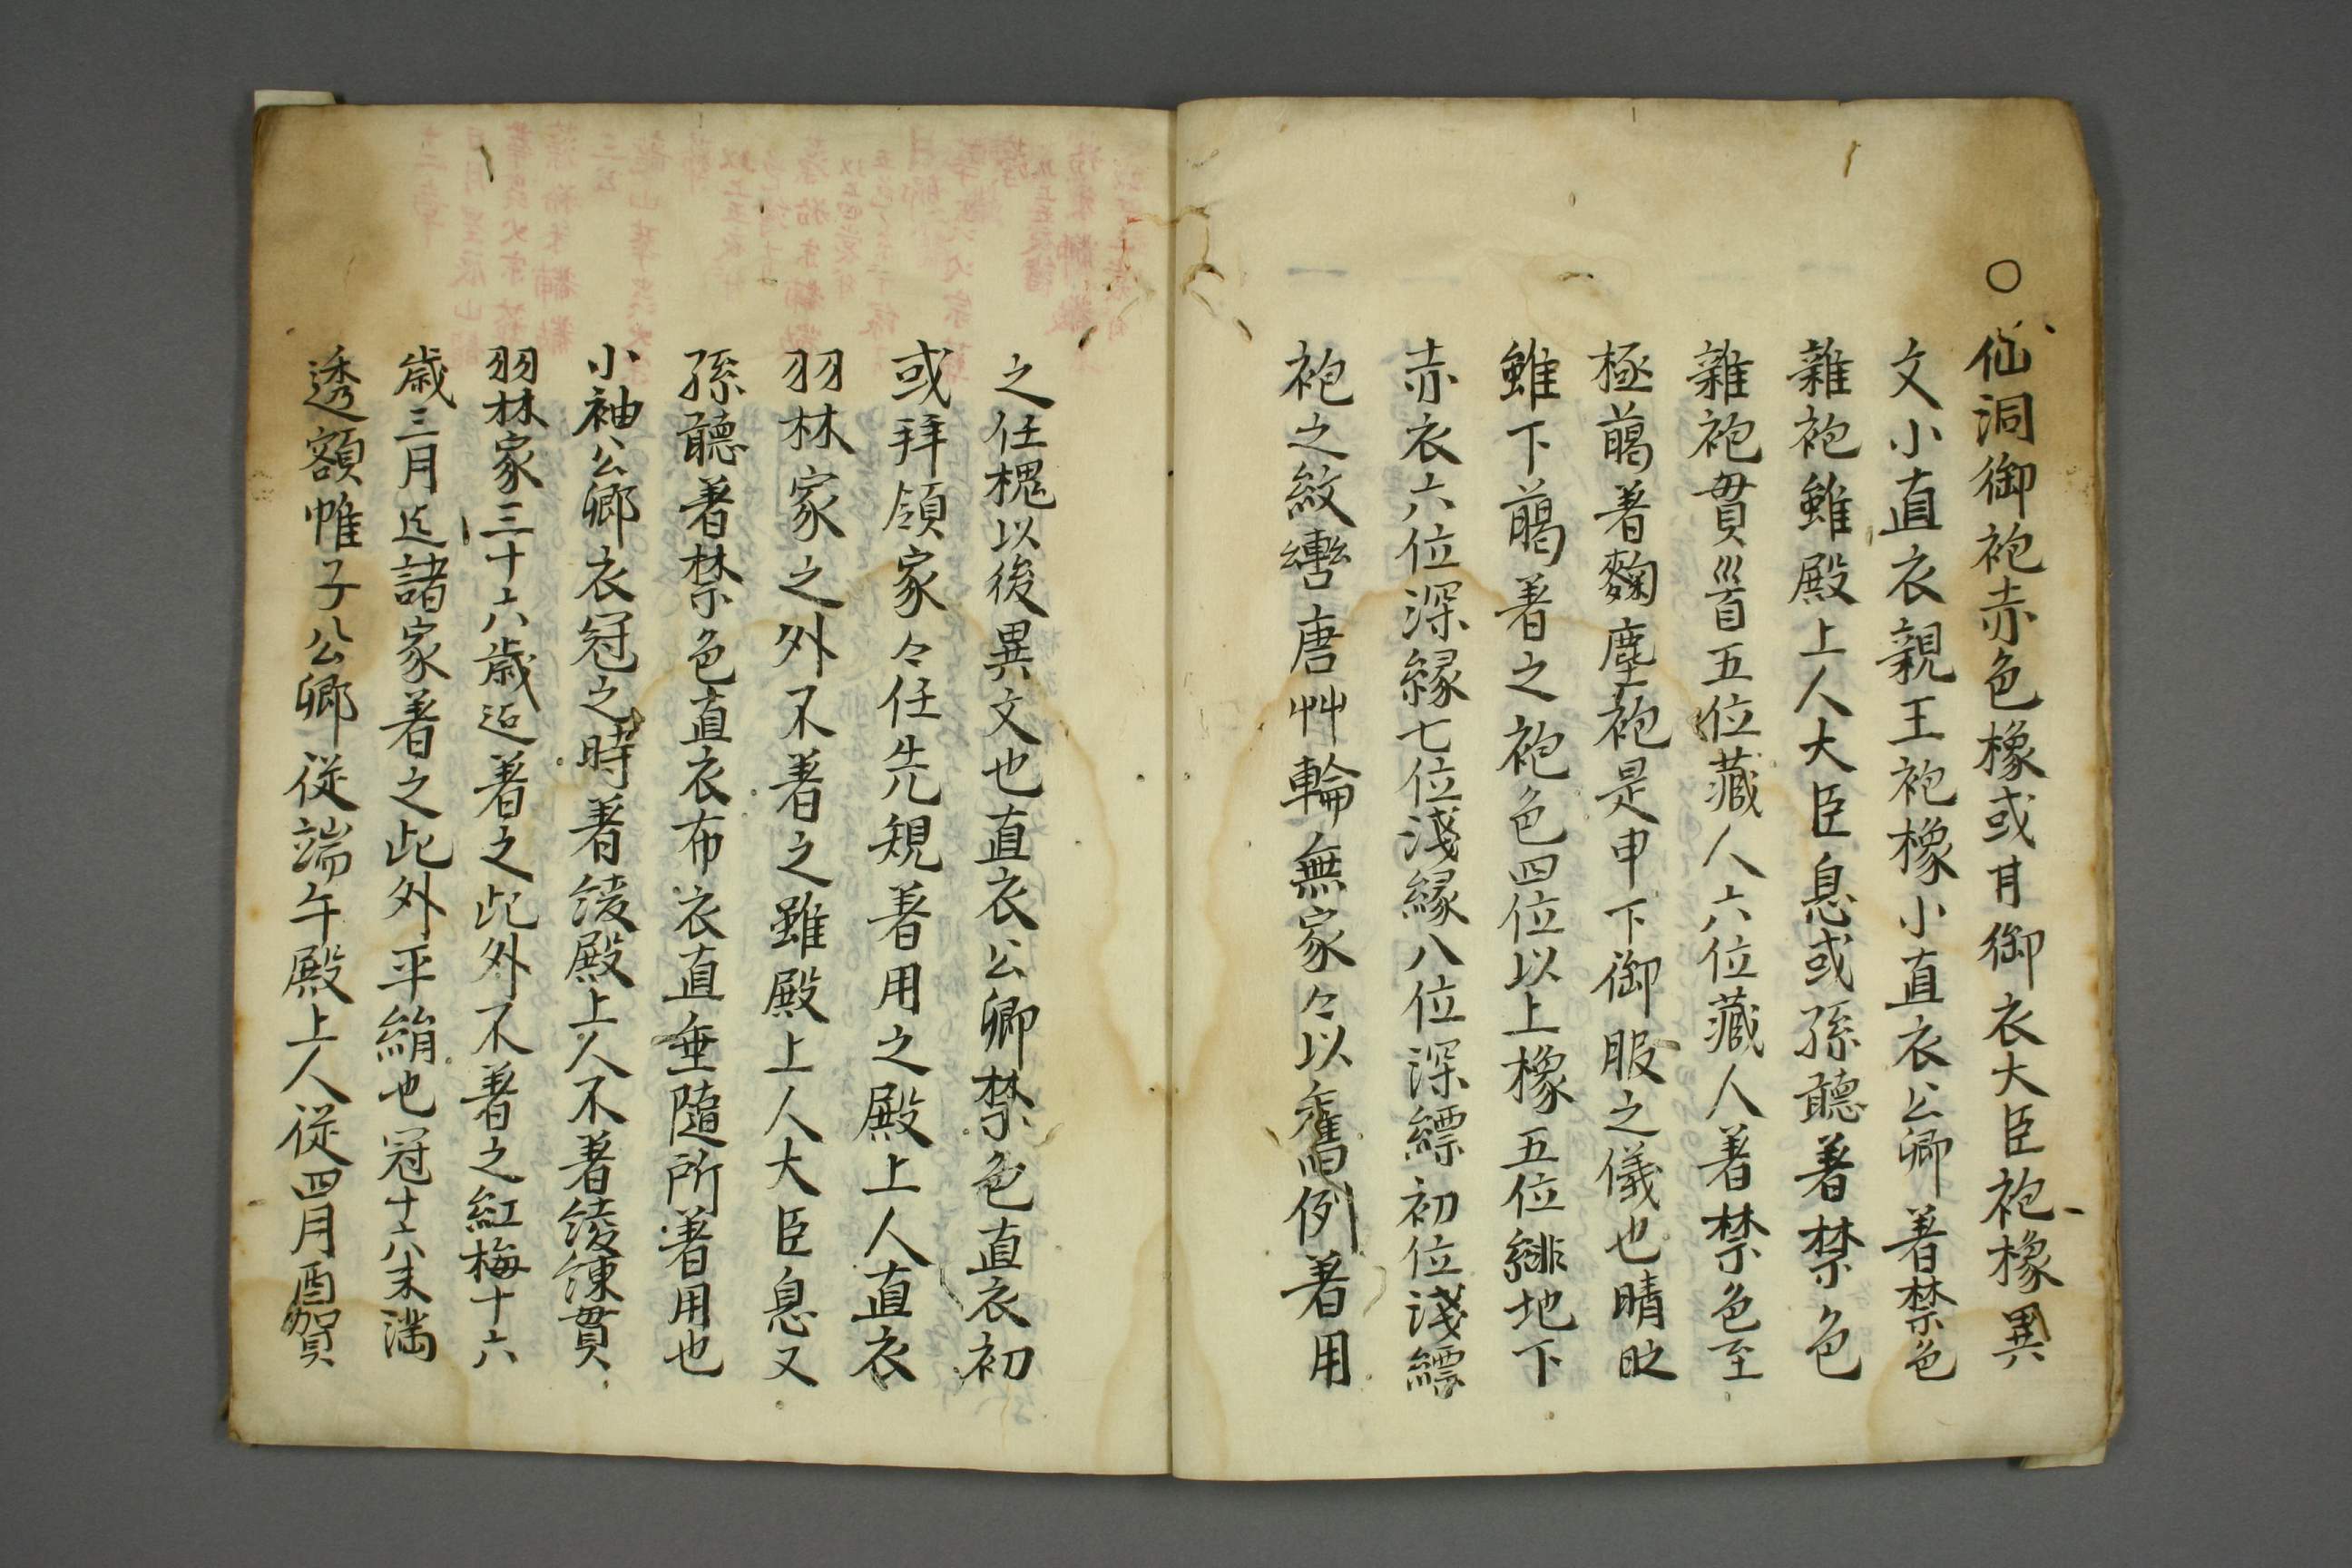 ○仙洞御袍赤色橡或甘御衣大臣袍橡異
文小直衣親王袍橡小直衣公卿著禁色
雜袍雖殿上人大臣息或孫聽著禁色
雜袍貫首五位藏人六位藏人著禁色至
極﨟著麴塵袍是申下御服之儀也晴之時
雖下﨟著之袍色四位以上橡五位緋地下
赤衣六位深緑七位淺緑八位深縹初位淺縹
袍之紋轡唐艸輪無家々以舊例著用
之任槐以後異文也直衣公卿禁色直衣初
或拜領家々任先規著用之殿上人直衣
羽林家之外不著之雖殿上人大臣息又
孫聽著禁色直衣布衣直垂隨所著用也
小袖公卿衣冠之時著綾殿上人不著綾練貫
羽林家三十六歳迄著之此外不著之紅梅十六
歳三月迄諸家著之此外平絹也冠十六未満
透額帷子公卿從端午殿上人從四月酉賀